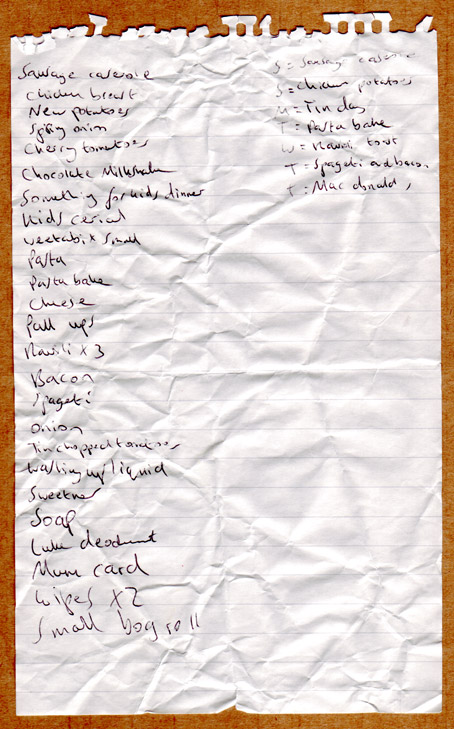 Sausage caserole
Chicken breast
New potatoes
Spring onion
Cherry tomatoes
Chocolate Milkshake
Something for kids dinner
Kids cerial
weetabix small
Pasta
Pasta bake
Cheese
Pull ups
Ravili x 3
Bacon
Spageti
Onion
Tin chopped tomatoes
Washing up liquid
Sweetner
Soap
Luke deodrant
Mum card
Wipes x2
Small bog roll
S = Sausage caserole
S = Chicken potatoes
M = Tin day
T = Pasta bake
W = Ravili toast
T = Spageti and bacon
T = Mac donalds